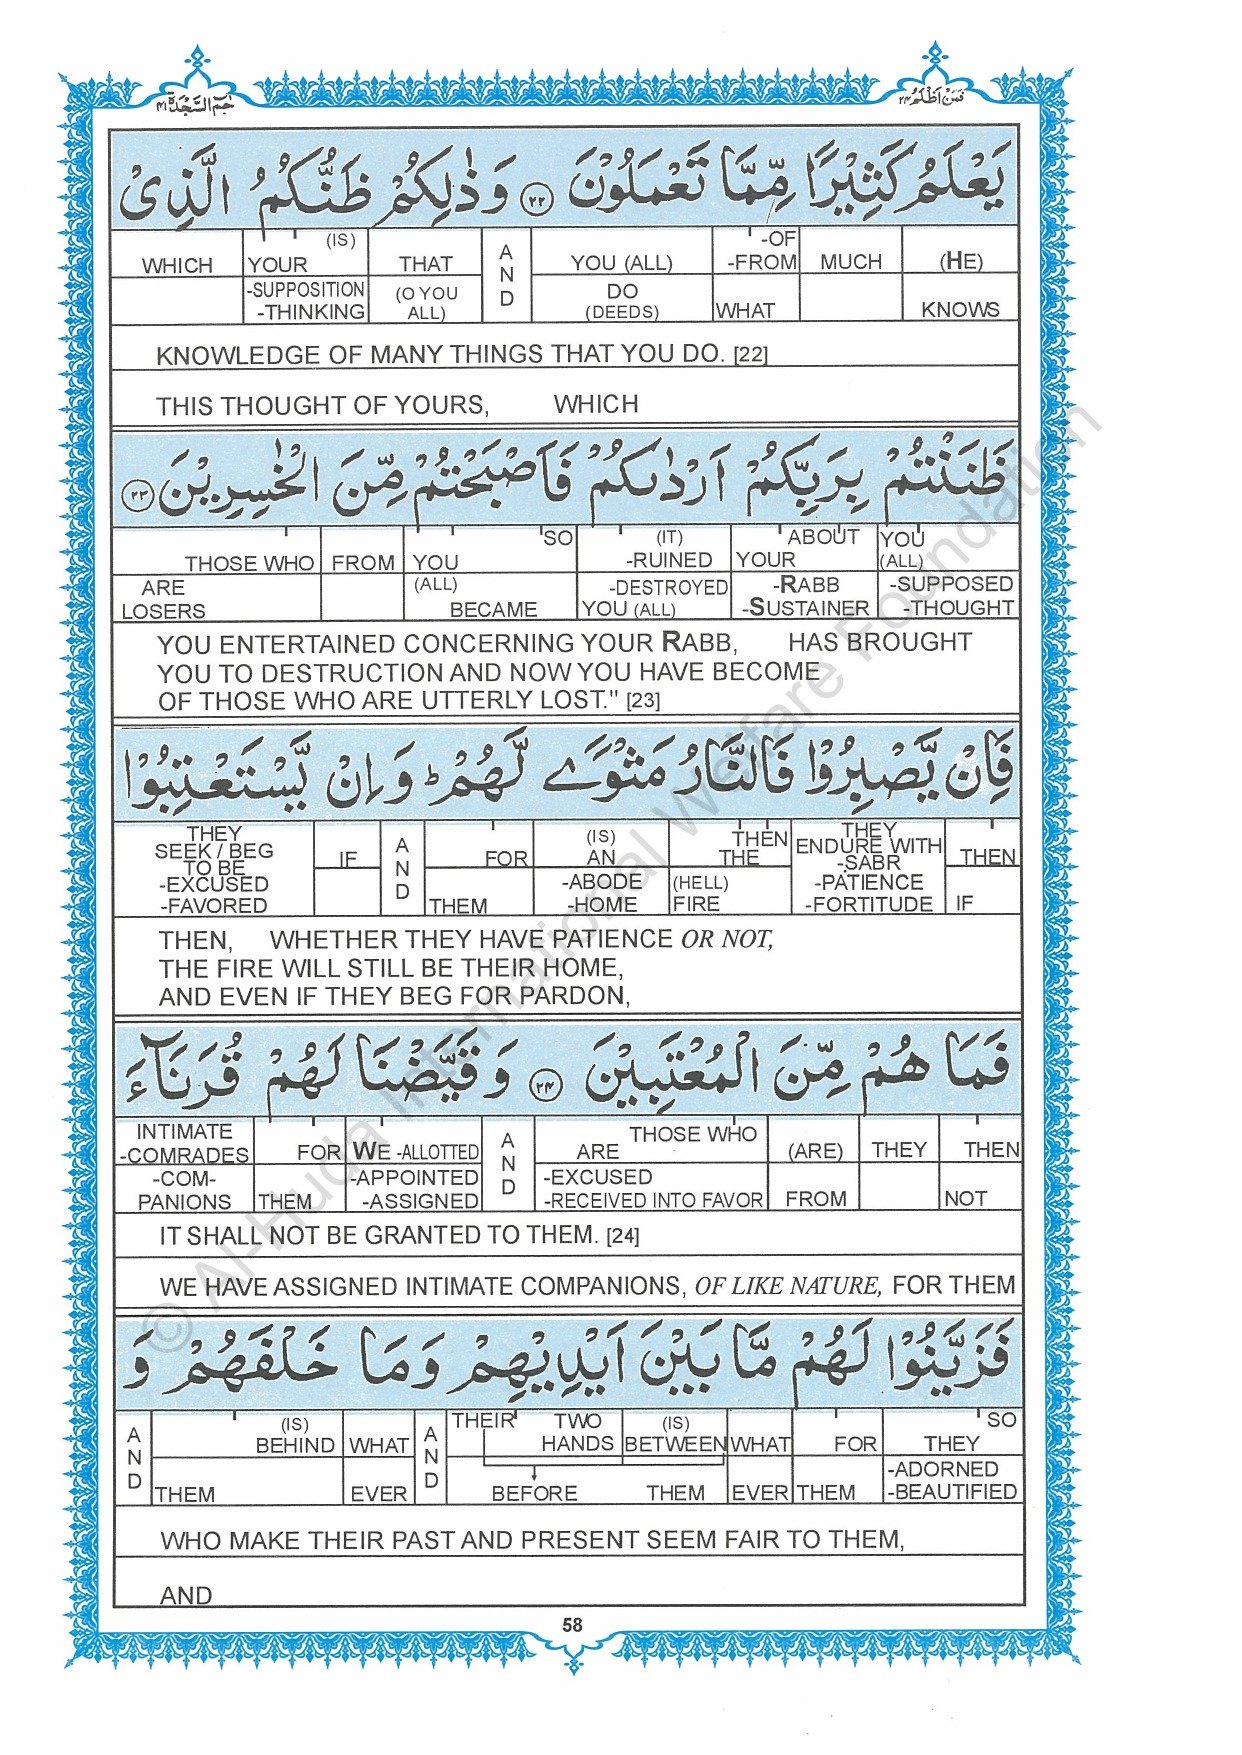 حٰمٓ السَّجْدَة ٤١
فَمَنْ اَظْلَمُ ٢٤
يَعْلَمُ كَثِيْرًا مِّمَّا تَعْمَلُوْنَ ۝٢٢ وَذٰلِكُمْ ظَنُّكُمُ الَّذِىْ
WHICH YOUR (IS) THAT AND YOU (ALL) -OF -FROM MUCH (HE)
-SUPPOSITION -THINKING (O YOU ALL) DO (DEEDS) WHAT KNOWS
KNOWLEDGE OF MANY THINGS THAT YOU DO. [22]
THIS THOUGHT OF YOURS, WHICH
ظَنَنْتُمْ بِرَبِّكُمْ اَرْدٰىكُمْ فَاَصْبَحْتُمْ مِّنَ الْخٰسِرِيْنَ ۝٢٣
THOSE WHO FROM YOU SO (IT) -RUINED ABOUT YOUR YOU (ALL)
ARE LOSERS (ALL) BECAME -DESTROYED YOU (ALL) -RABB -SUSTAINER -SUPPOSED -THOUGHT
YOU ENTERTAINED CONCERNING YOUR RABB, HAS BROUGHT
YOU TO DESTRUCTION AND NOW YOU HAVE BECOME
OF THOSE WHO ARE UTTERLY LOST." [23]
فَاِنْ يَّصْبِرُوْا فَالنَّارُ مَثْوًى لَّهُمْ ؕ وَاِنْ يَّسْتَعْتِبُوْا
THEY SEEK / BEG TO BE -EXCUSED -FAVORED IF AND FOR (IS) AN THEN THE THEY ENDURE WITH -SABR THEN
THEM -ABODE -HOME (HELL) FIRE -PATIENCE -FORTITUDE IF
THEN, WHETHER THEY HAVE PATIENCE OR NOT,
THE FIRE WILL STILL BE THEIR HOME,
AND EVEN IF THEY BEG FOR PARDON,
فَمَا هُمْ مِّنَ الْمُعْتَبِيْنَ ۝٢٤ وَقَيَّضْنَا لَهُمْ قُرَنَآءَ
INTIMATE -COMRADES FOR WE -ALLOTTED AND THOSE WHO ARE (ARE) THEY THEN
-COM- PANIONS THEM -APPOINTED -ASSIGNED -EXCUSED -RECEIVED INTO FAVOR FROM NOT
IT SHALL NOT BE GRANTED TO THEM. [24]
WE HAVE ASSIGNED INTIMATE COMPANIONS, OF LIKE NATURE, FOR THEM
فَزَيَّنُوْا لَهُمْ مَّا بَيْنَ اَيْدِيْهِمْ وَمَا خَلْفَهُمْ وَ
AND (IS) BEHIND WHAT AND THEIR TWO HANDS (IS) BETWEEN WHAT FOR SO THEY
THEM EVER BEFORE THEM EVER THEM -ADORNED -BEAUTIFIED
WHO MAKE THEIR PAST AND PRESENT SEEM FAIR TO THEM,
AND
58
© Al-Huda International Welfare Foundation